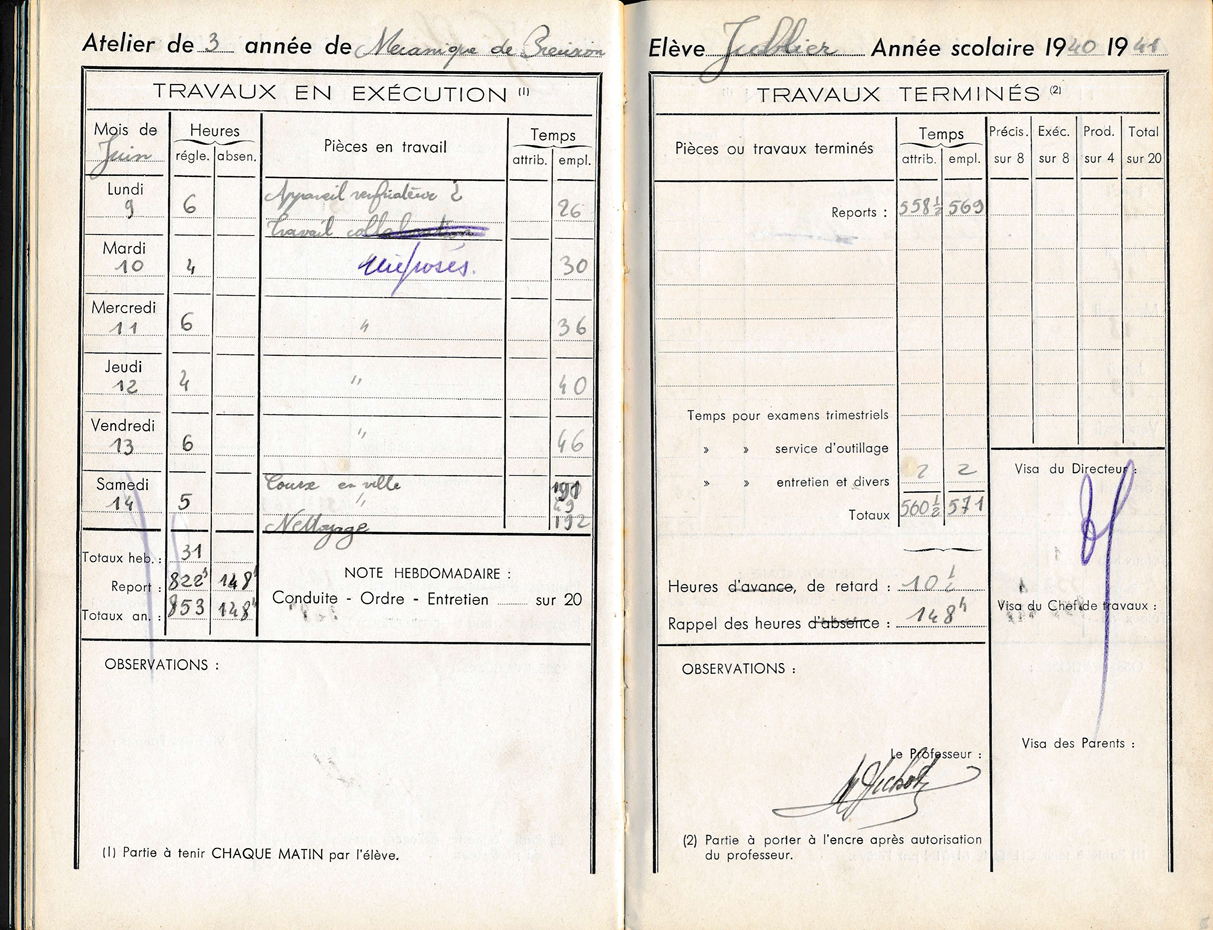 Atelier de 3 année de Mécanique de Precision
TRAVAUX EN EXÉCUTION (1)
Mois de Juin
Heures
régle. absen.
Pièces en travail
Temps
attrib. empl.
Lundi 9 6 Appareil verificateur 2 26
Travail collaboration
Mardi 10 4 30
Mercredi 11 6 " 36
Jeudi 12 4 " 40
Vendredi 13 6 " 46
Samedi 14 5 Course en ville
" 49
Nettoyage 192
Totaux heb. : 31
Report : 822h 148h
Totaux an. : 853 148h
NOTE HEBDOMADAIRE :
Conduite - Ordre - Entretien ...... sur 20
OBSERVATIONS :
(1) Partie à tenir CHAQUE MATIN par l'élève.
Elève Jublier Année scolaire 1940 1941
TRAVAUX TERMINÉS (2)
Pièces ou travaux terminés
Temps
attrib. empl.
Précis. sur 8
Exéc. sur 8
Prod. sur 4
Total sur 20
Reports : 558 1/2 569
Temps pour examens trimestriels
» » service d'outillage
» » entretien et divers 2 2
Totaux 560 1/2 571
Heures d'avance, de retard : 10 1/2
Rappel des heures d'absence : 148h
Visa du Directeur :
Visa du Chef de travaux :
Visa des Parents :
OBSERVATIONS :
Le Professeur :
(2) Partie à porter à l'encre après autorisation
du professeur.